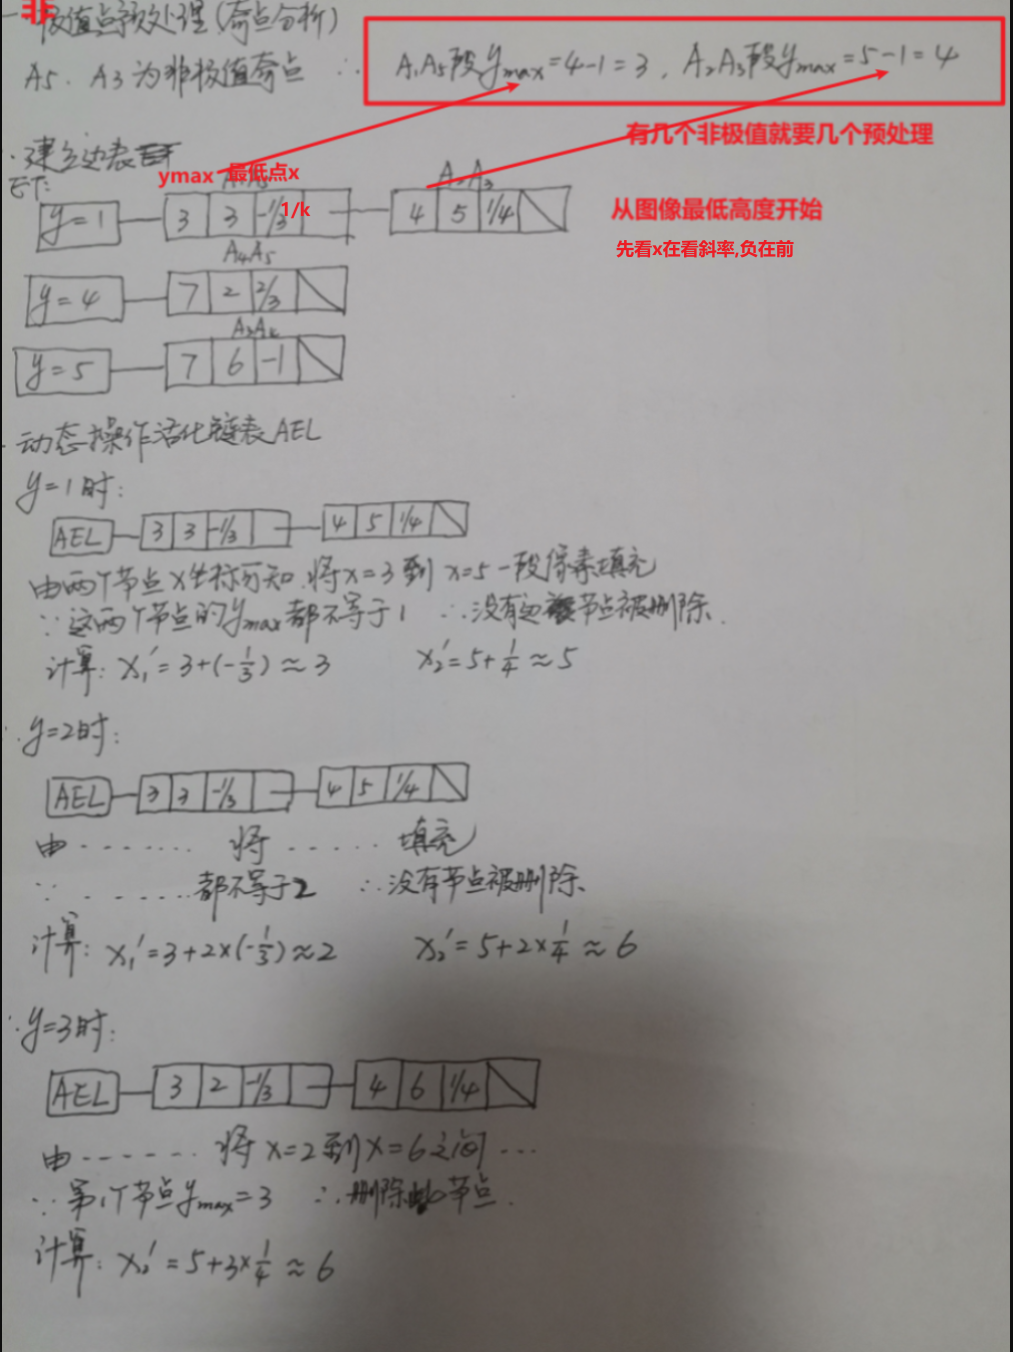 非
一 极值点预处理(奇点分析)
A5、A3为非极值奇点 ∴ A₁A₅段ymax=4-1=3, A₂A₃段ymax=5-1=4
有几个非极值就要几个预处理
∴建立边表
ET:
ymax 最低点x A₂A₃
y=1 3 3 -1/3 1/k 4 5 1/4
从图像最低高度开始
先看x在看斜率,负在前
A₄A₅
y=4 7 2 2/3
y=5 7 6 -1
动态操作活化链表AEL
y=1时:
AEL 3 3 -1/3 4 5 1/4
由两个节点x坐标可知,将x=3到x=5一段像素填充
∵这两个节点的ymax都不等于1 ∴没有边被节点被删除.
计算: x₁'=3+(-1/3)≈3 x₂'=5+1/4≈5
y=2时:
AEL 3 3 -1/3 4 5 1/4
由······· 将 ····· 填充
∵ ······都不等于2 ∴没有节点被删除、
计算: x₁'=3+2×(-1/3)≈2 x₂'=5+2×1/4≈6
∴y=3时:
AEL 3 2 -1/3 4 6 1/4
由······ 将x=2到x=6之间···
∵第1个节点ymax=3 ∴删除此节点.
计算: x₂'=5+3×1/4≈6